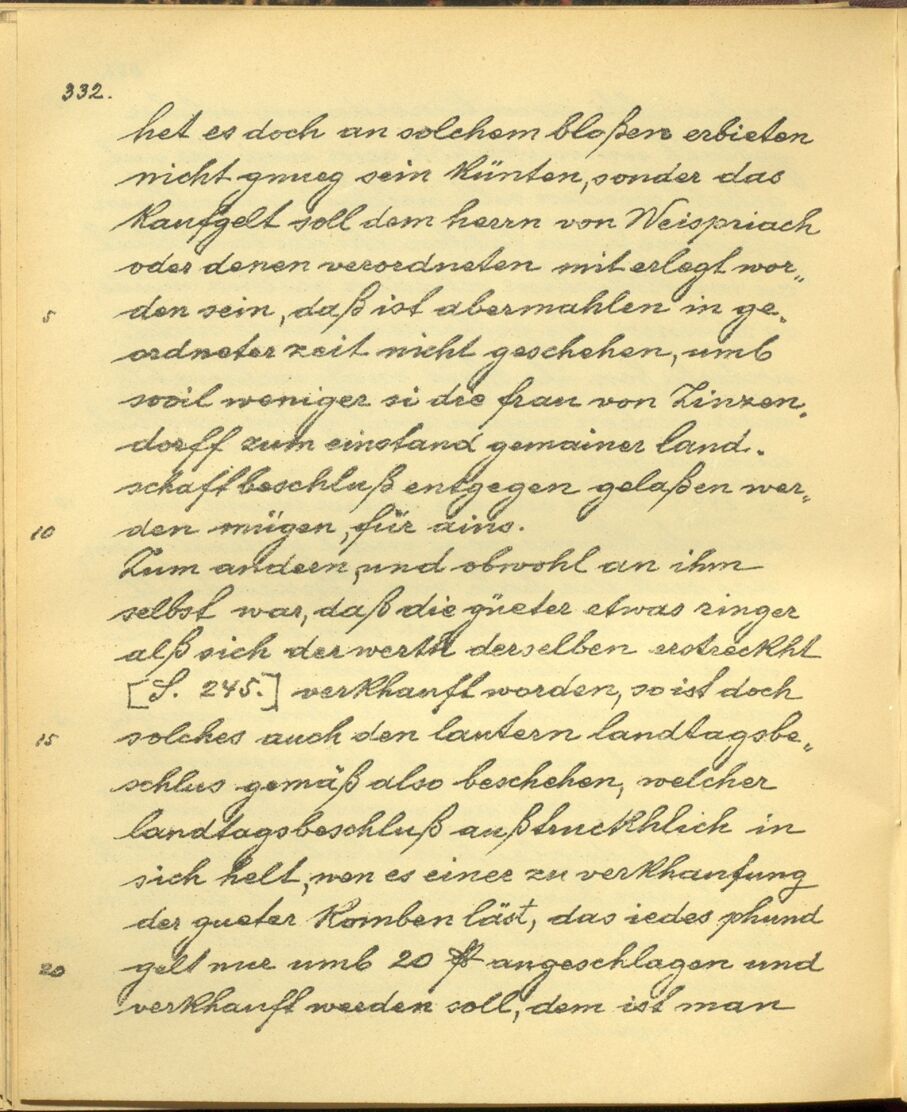 332.
het es doch an solchem bloßen erbieten
nicht gnueg sein künten, sonder das
kaufgelt soll dem herrn von Weispriach
oder denen verordneten mit erlegt wor„
5 den sein, daß ist abermahlen in ge„
ordneter zeit nicht geschehen, umb
sovil weniger si die frau von Zinzen„
dorff zum einstand gemainer land„
schaft beschluß entgegen gelaßen wer„
10 den mügen, für ains.
Zum andern, und obwohl an ihm
selbst war, daß die güeter etwas ringer
alß sich der werth derselben erstreckht
[S. 245.] verkhauft worden, so ist doch
15 solches auch den lautern landtagsbe„
schlus gemäß also beschehen, welcher
landtagsbeschluß außtruckhlich in
sich helt, wen es einer zu verkhaufung
der gueter komben läst, das iedes phund
20 gelt nur umb 20 angeschlagen und
verkhauft werden soll, dem ist man